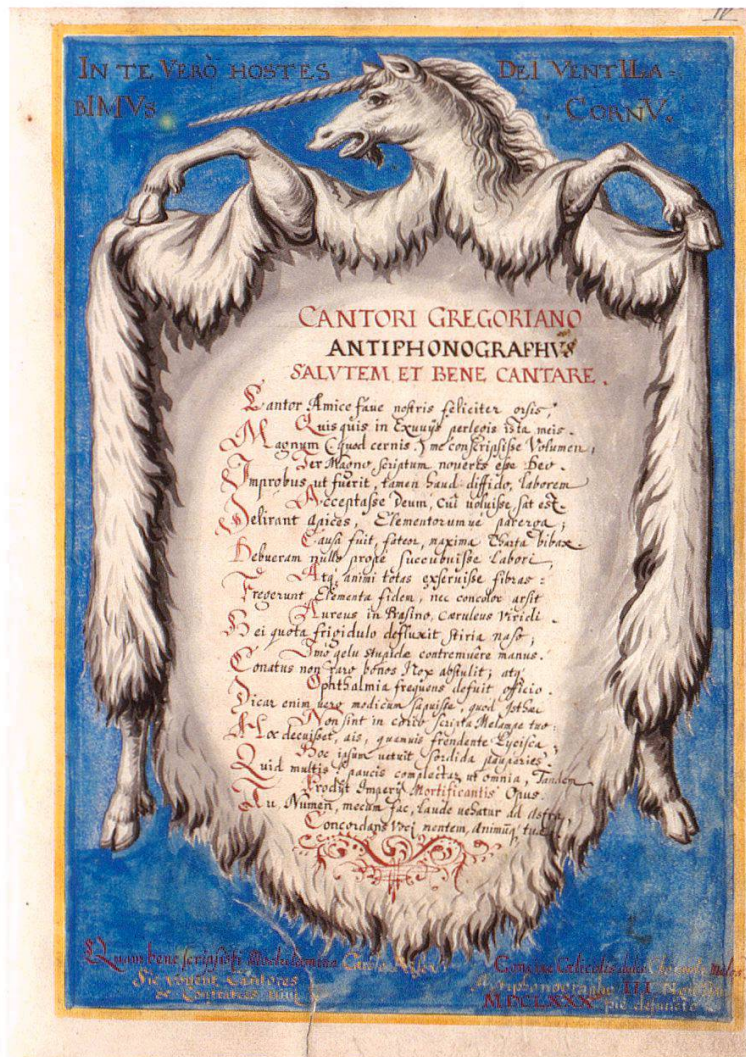 IV
IN TE VERÒ HOSTES DEI VENTILA=
BIMVS CORNV.
CANTORI GREGORIANO
ANTIPHONOGRAPHVS
SALVTEM ET BENE CANTARE.
Cantor Amice faue nostris feliciter orsis,
Quisquis in Exuuijs perlegis ista meis.
Magnum (quod cernis) me conscripsisse Volumen,
Ter Magno scriptum noueris esse Deo.
Improbus ut fuerit, tamen haud diffido, laborem
Acceptasse Deum, cui uoluisse sat est.
Delirant apices, Elementorumue parerga,
Causa fuit, fateor, maxima Charta bibax.
Debueram nullo prope succubuisse labori,
Atq. animi totas exseruisse fibras:
Fregerunt Elementa fidem, nec concolor arsit
Aureus in Prasino, cæruleus Viridi.
Hei quota frigidulo defluxit stiria naso,
Imo gelu stupidæ contremuêre manus.
Conatus non raro bonos Nox abstulit, atq.
Ophthalmia frequens defuit officio.
Dicar enim vero modicum sapuisse, quod
Non sint in scripta Melampe tuo.
decuisset, ais, quamuis frendente Lycisca,
Hoc ipsum uetuit sordida pauperies.
Quid multis? paucis complectar ut omnia, Tandem
Prodijt Imperij Mortificantis Opus.
Tu Numen, mecum fac, laude uehatur ad astra,
Concordans voci mentem, animūq. tuā.
Quam bene scripsisti
Sic vovent Cantores
Antiphonographo III
MDCLXXX pie defuncto